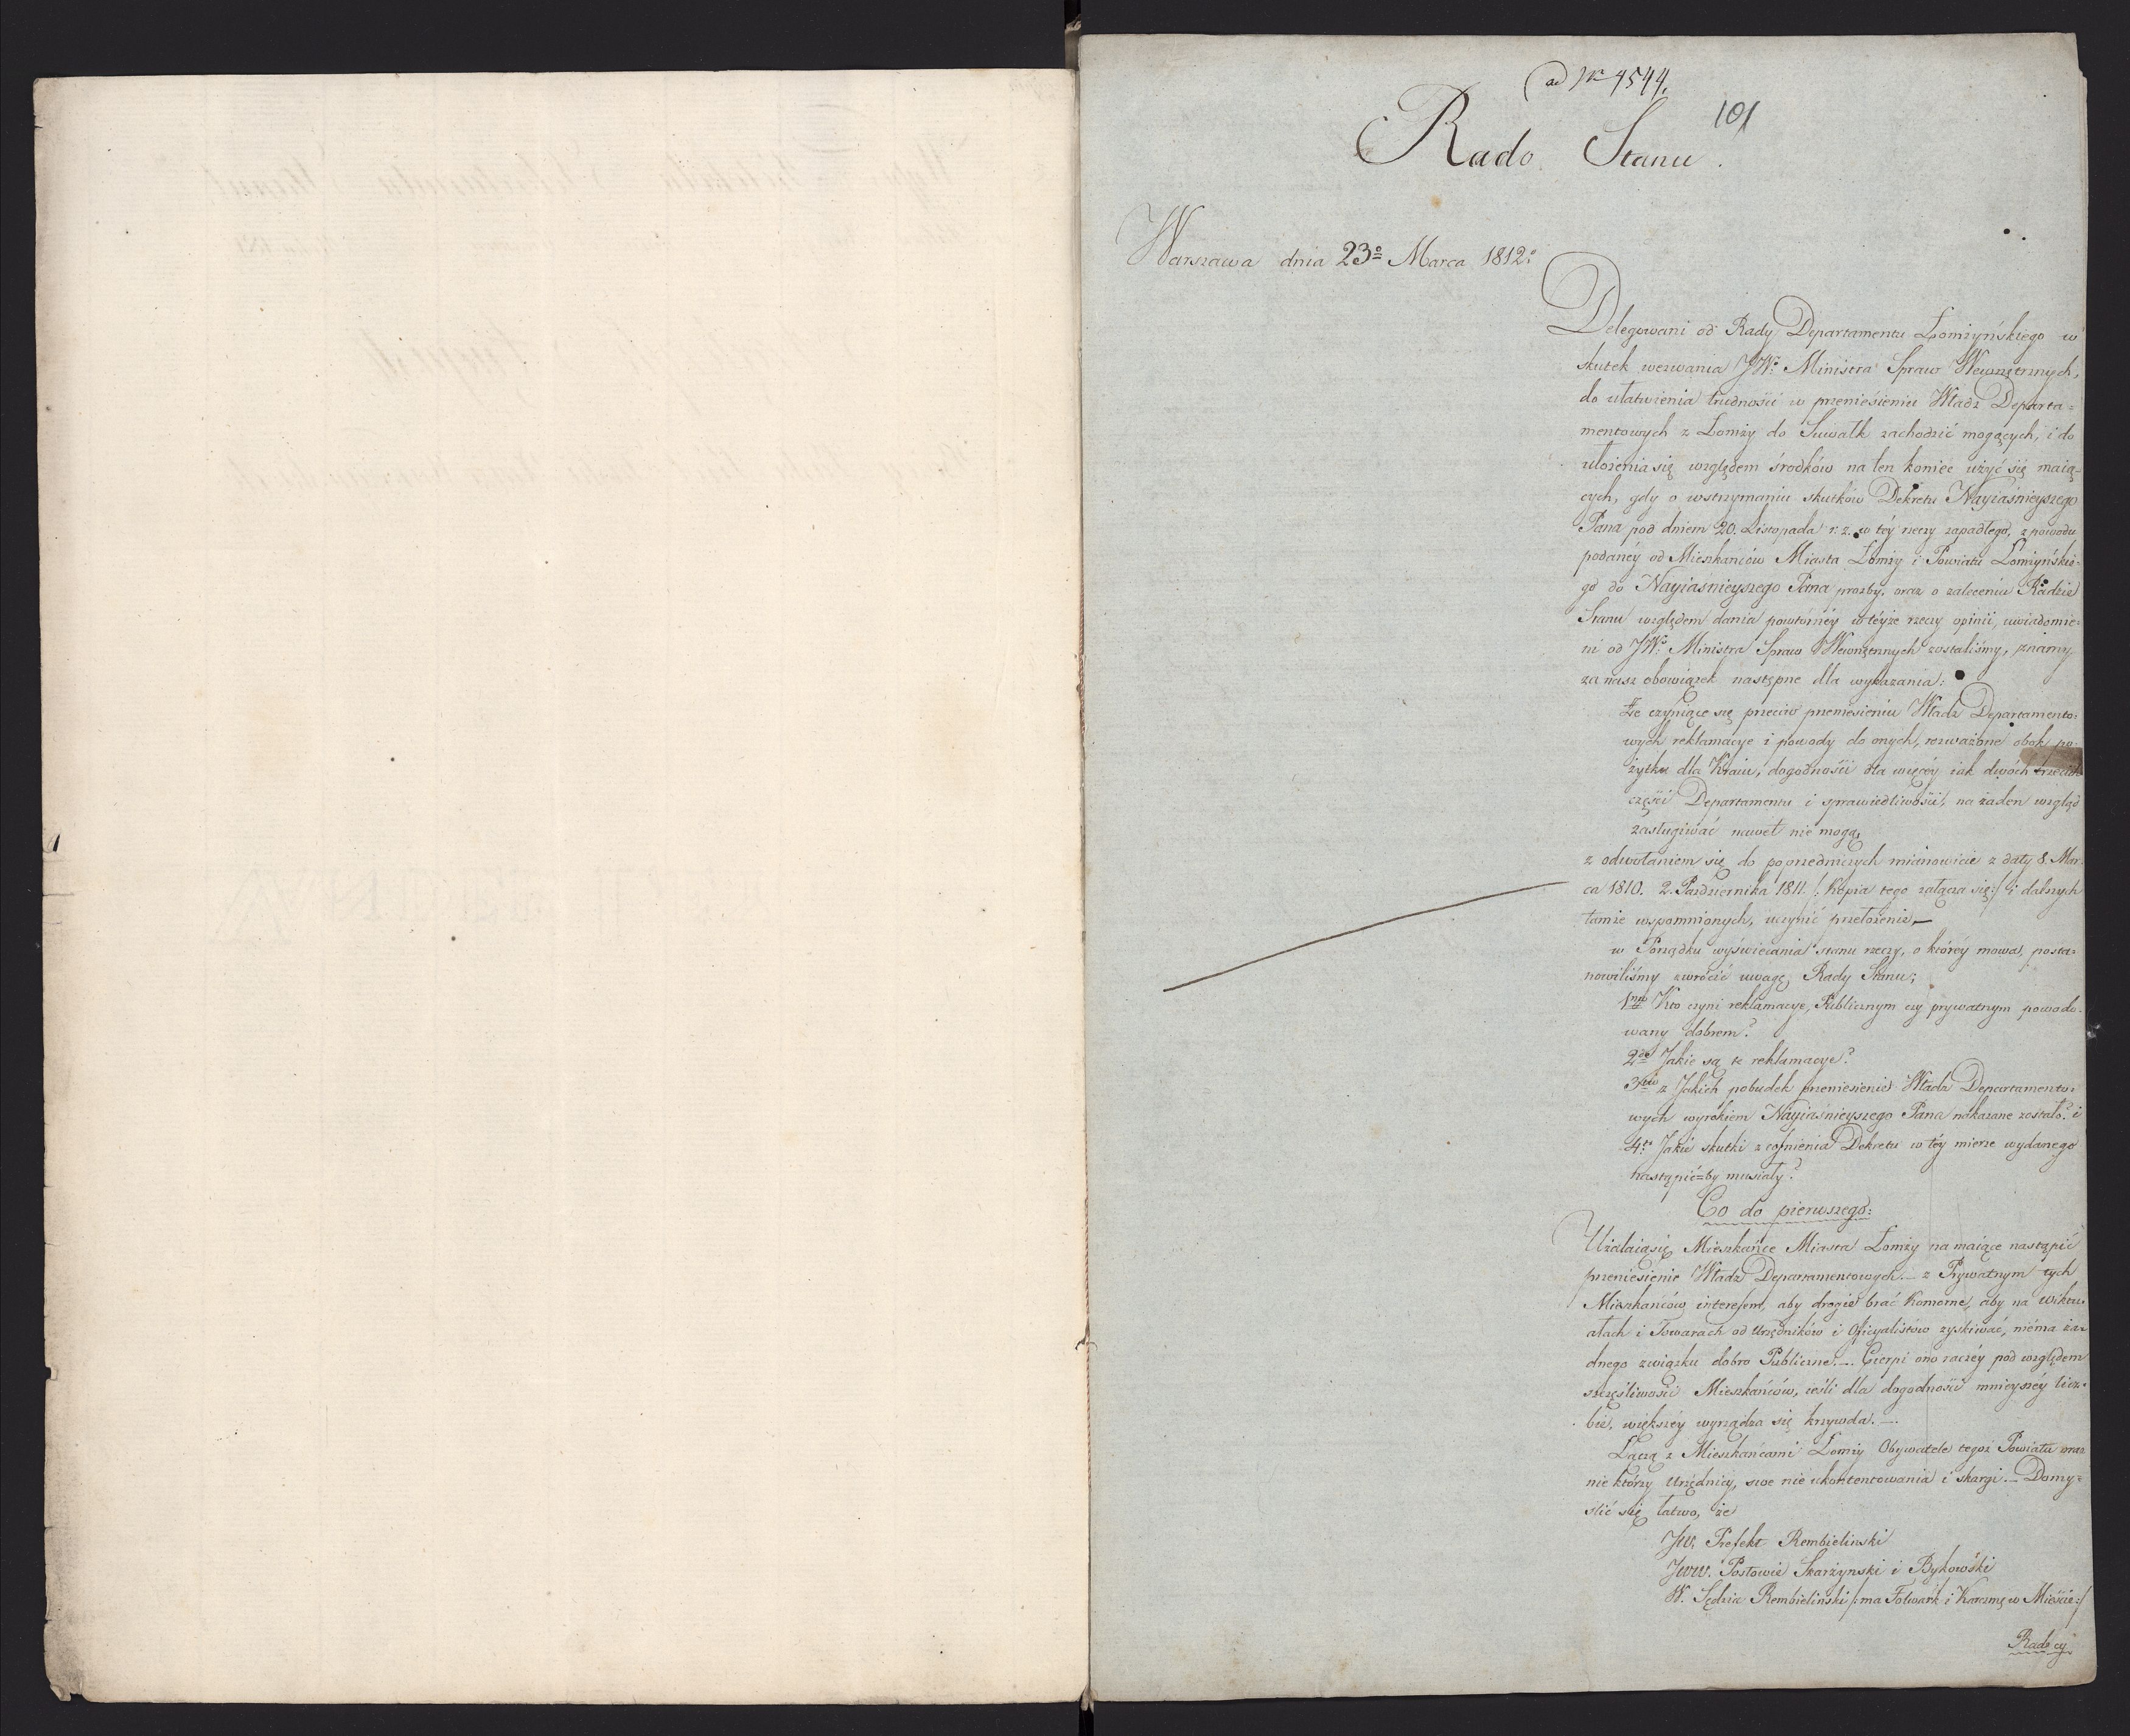 ad Nr 4544.
101
Rado Stanu.
Warszawa dnia 23º Marca 1812º
Delegowani od Rady Departamentu Łomżyńskiego w
skutek wezwania JWº Ministra Spraw Wewnętrznych,
do ułatwienia trudności w przeniesieniu Władz Departa=
mentowych z Łomży do Suwałk zachodzić mogących, i do
ułożenia się względem środków na ten koniec użyć się maią=
cych, gdy o wstrzymaniu skutków Dekretu Nayiaśnieyszego
Pana pod dniem 20. Listopada r. z. w téy rzeczy zapadłego, z powodu
podanéy od Mieszkańców Miasta Łomży i Powiatu Łomżyńskie=
go do Nayiaśnieyszego Pana prozby, oraz o zaleceniu Radzie
Stanu względem dania powtórnéy w téyże rzeczy opinii, uwiadomie=
ni od JWº Ministra Spraw Wewnętrznych zostaliśmy, znamy
za nasz obowiązek następne dla wykazania:
Że czyniące się przeciw przeniesieniu Władz Departamento=
wych reklamacye i powody do onych, rozważone obok po=
żytku dla Kraiu, dogodności dla więcéy iak dwóch trzecich
części Departamentu i sprawiedliwości, na żaden wzgląd
zasługiwać nawet nie mogą,
z odwołaniem się do poprzedniczych mianowicie z daty 8. Mar=
ca 1810. 2. Październiká 1811. /: Kopia tego załącza się :/ i dalszych
tamże wspomnionych, uczynić przełożenie,—
w Porządku wyświecania stanu rzeczy, o któréy mowa, posta=
nowiliśmy zwrócić uwagę Rady Stanu;
1mo Kto czyni reklamacye, Publicznym czy prywatnym powodo=
wany dobrem?
2do Jakie są te reklamacye?
3tio z Jakich pobudek przeniesienie Władz Departamento=
wych wyrokiem Nayiaśnieyszego Pana nakazane zostało? i
4to Jakie skutki z cofnienia Dekretu w téy mierze wydanego
nastąpić=by musiały?
Co do pierwszego:
Użalaią się Mieszkańce Miasta Łomży na maiące nastąpić
przeniesienie Władz Departamentowych.— z Prywatnym tych
Mieszkańców interesem, aby drogie brać Komorne, aby na wiktu=
ałach i Towarach od Urzędników i Oficyalistów zyskiwać, niéma ża=
dnego związku dobro Publiczne.—. Cierpi ono raczéy pod względem
szczęśliwości Mieszkańców, ieśli dla dogodności mnieyszéy licz=
bie, większéy wyrządza się krzywda.—.
Łączą z Mieszkańcami Łomży Obywatele tegoż Powiatu oraz
nie którzy Urzędnicy, swe nie ukontentowania i skargi.— Domy=
slić się łatwo, że
JW. Prefekt Rembielinski
JWW. Posłowie Skarżynski i Bykowski
W. Sędzia Rembieliński /: ma Folwark i Karczmę w Mieście :/
Radzcy